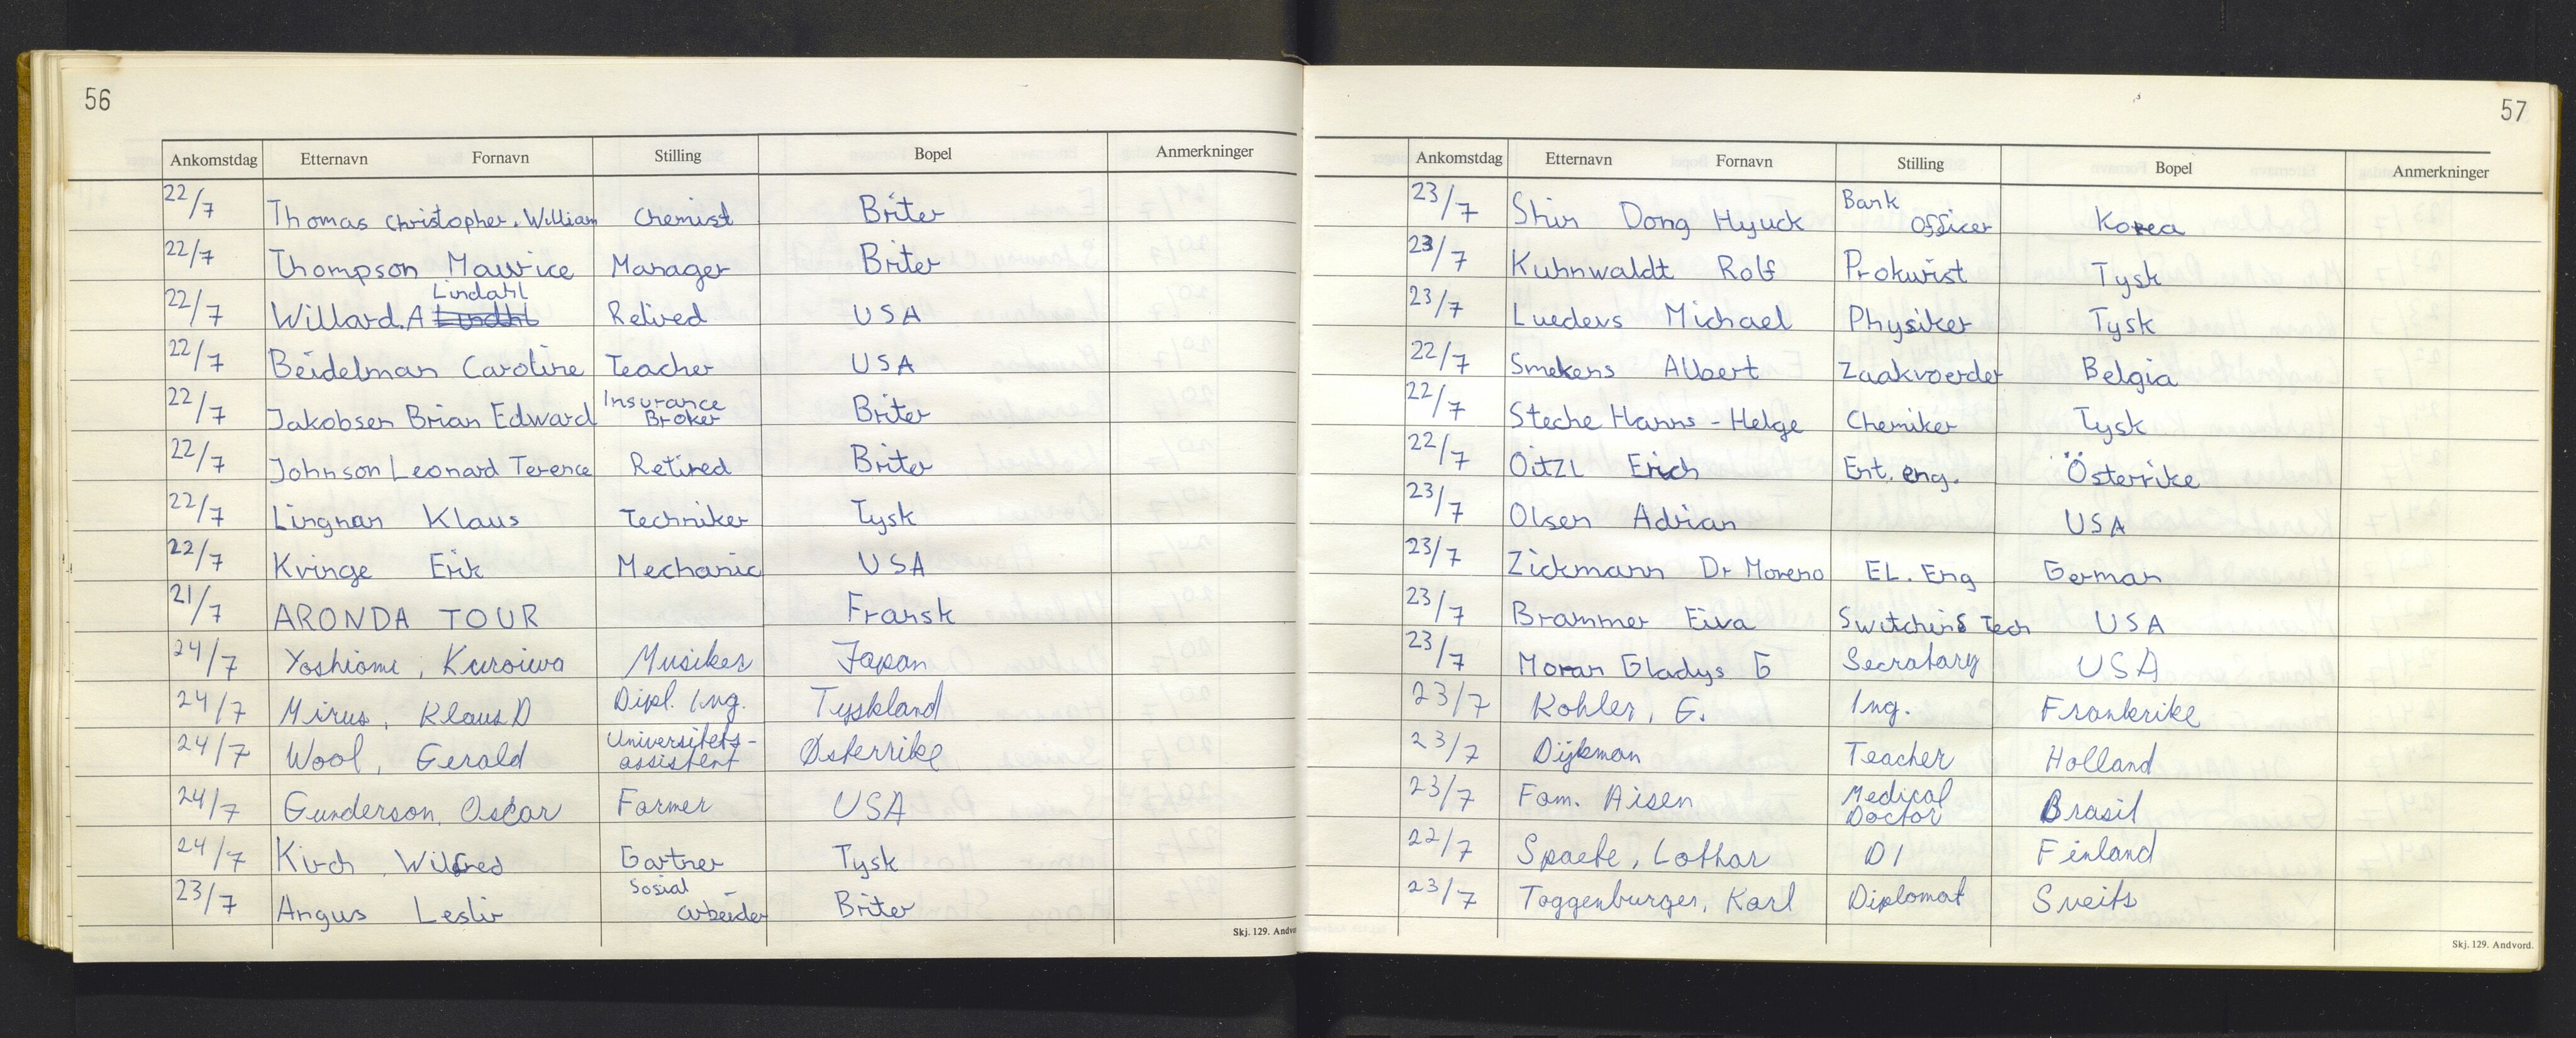 56
Ankomstdag Etternavn Fornavn Stilling Bopel Anmerkninger
22/7 Thomas Christopher. William Chemist Briter
22/7 Thompson Maurice Manager Briter
Lindahl
22/7 Willard. A Lundhl Retired USA
22/7 Beidelman Caroline Teacher USA
22/7 Jakobsen Brian Edward Insurance Broker Briter
22/7 Johnson Leonard Terence Retired Briter
22/7 Lingnan Klaus Techniker Tysk
22/7 Kvinge Erik Mechanic USA
21/7 ARONDA TOUR Fransk
24/7 Yoshiomi, Kuroiwa Musiker Japan
24/7 Mirus, Klaus D Dipl. Ing. Tyskland
24/7 Wool, Gerald Universitets-assistent Østerrike
24/7 Gunderson, Oscar Farmer USA
24/7 Kirch Wilfred Gartner Tysk
23/7 Angus Leslie Sosial - arbeider Briter
Skj. 129. Andvo
57
Ankomstdag Etternavn Fornavn Stilling Bopel Anmerkninger
23/7 Shin Dong Hyuck Bank Officer Korea
23/7 Kuhnwaldt Rolf Prokurist Tysk
23/7 Lueders Michael Physiker Tysk
22/7 Smekens Albert Zaakvoerder Belgia
22/7 Steche Hanns - Helge Chemiker Tysk
22/7 Oitzl Erich Ent. eng. Österrike
23/7 Olsen Adrian USA
23/7 Zickmann Dr Moreno EL. Eng German
23/7 Brammer Eiva Switching Tech USA
23/7 Moran Gladys G Secratary USA
23/7 Kohler, G. Ing. Frankrike
23/7 Dijkman Teacher Holland
23/7 Fam. Aisen Medical Doctor Brasil
22/7 Spaete, Lothar DI Finland
23/7 Toggenburger, Karl Diplomat Sveits
Skj. 129. Andvord.